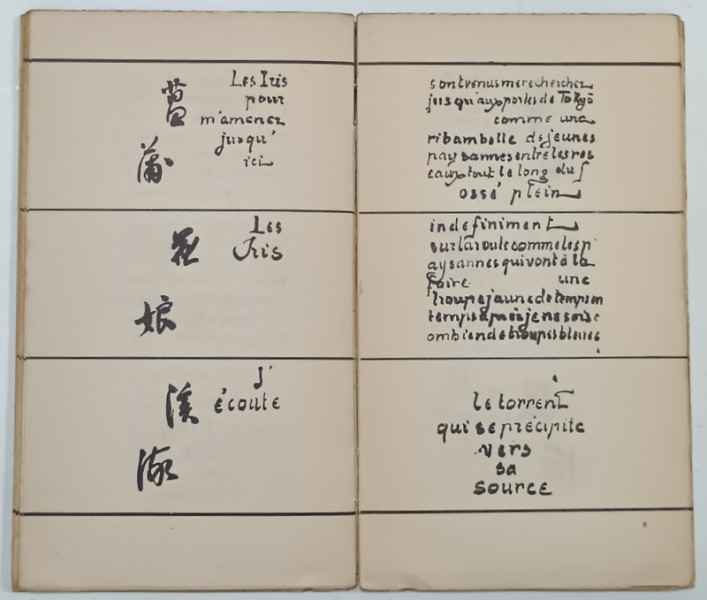 菖
蒲
Les Iris
pour
m'amener
jusqu'
ici
sont venus me rechercher
jusqu'aux portes de Tokyô
comme une
ribambelle de jeunes
paysannes entre les ros
eaux tout le long du f
ossé plein
花
娘
Les
Iris
indefiniment
sur la route comme les p
aysannes qui vont à la
foire une
troupe jaune de temps en
temps après je ne sais c
ombien de troupes bleues
溪
J'
écoute
le torrent
qui se précipite
vers
sa
source